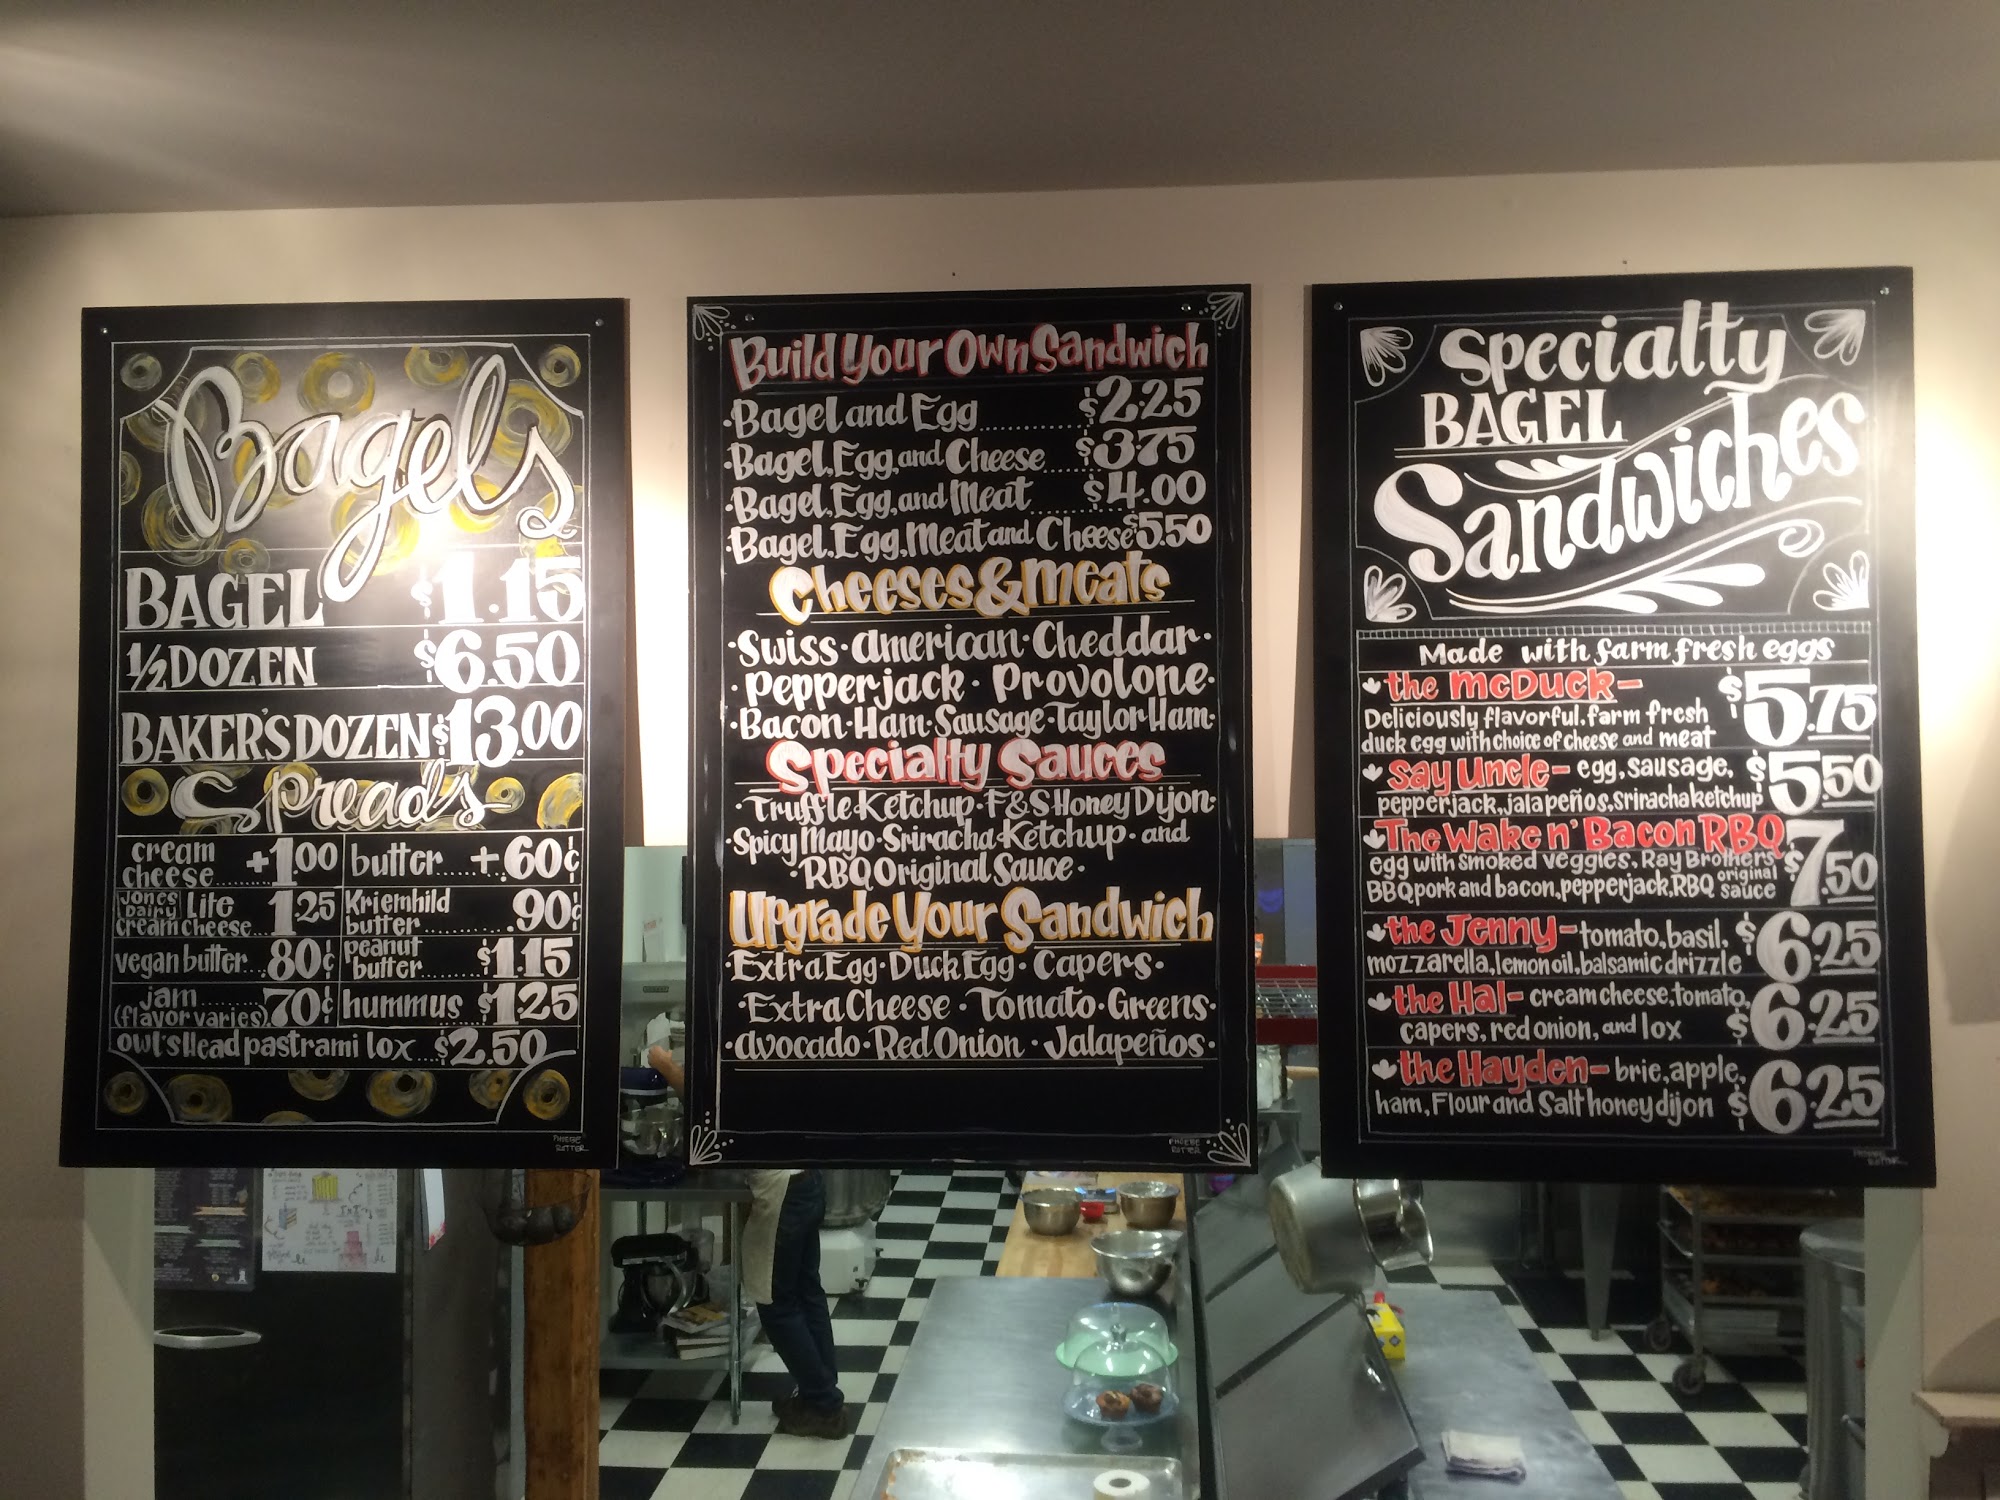 Bagels
BAGEL $1.15
1/2 DOZEN $6.50
BAKER'S DOZEN $13.00
Spreads
cream cheese....... +1.00
butter... +.60¢
Jones Dairy Lite cream cheese... 1.25
Kriemhild butter....... .90¢
vegan butter.. 80¢
peanut butter....... $1.15
jam........ (flavor varies). 70¢
hummus $1.25
owl's Head pastrami lox ... $2.50
PHOEBE ROTTER
Build Your Own Sandwich
·Bagel and Egg............ $2.25
·Bagel, Egg, and Cheese...... $3.75
·Bagel, Egg, and Meat.......... $4.00
·Bagel, Egg, Meat and Cheese $5.50
Cheeses & Meats
·Swiss·American·Cheddar·
·Pepperjack·Provolone·
·Bacon·Ham·Sausage·Taylor Ham·
Specialty Sauces
·Truffle Ketchup·F&S Honey Dijon·
Spicy Mayo·Sriracha Ketchup·and
·RBQ Original Sauce·
Upgrade Your Sandwich
·Extra Egg·Duck Egg·Capers·
·Extra Cheese·Tomato·Greens·
·Avocado·Red Onion·Jalapeños·
PHOEBE ROTTER
Specialty
BAGEL
Sandwiches
Made with farm fresh eggs
the McDuck- $5.75
Deliciously flavorful, farm fresh
duck egg with choice of cheese and meat
Say Uncle- egg, sausage, $5.50
pepperjack, jalapeños, Sriracha ketchup
The Wake n' Bacon RBQ $7.50
egg with smoked veggies, Ray Brothers
BBQ pork and bacon, pepperjack, RBQ original sauce
the Jenny- tomato, basil, $6.25
mozzarella, lemon oil, balsamic drizzle
the Hal- cream cheese, tomato, $6.25
capers, red onion, and lox
the Hayden- brie, apple, $6.25
ham, Flour and Salt honey dijon
PHOEBE ROTTER